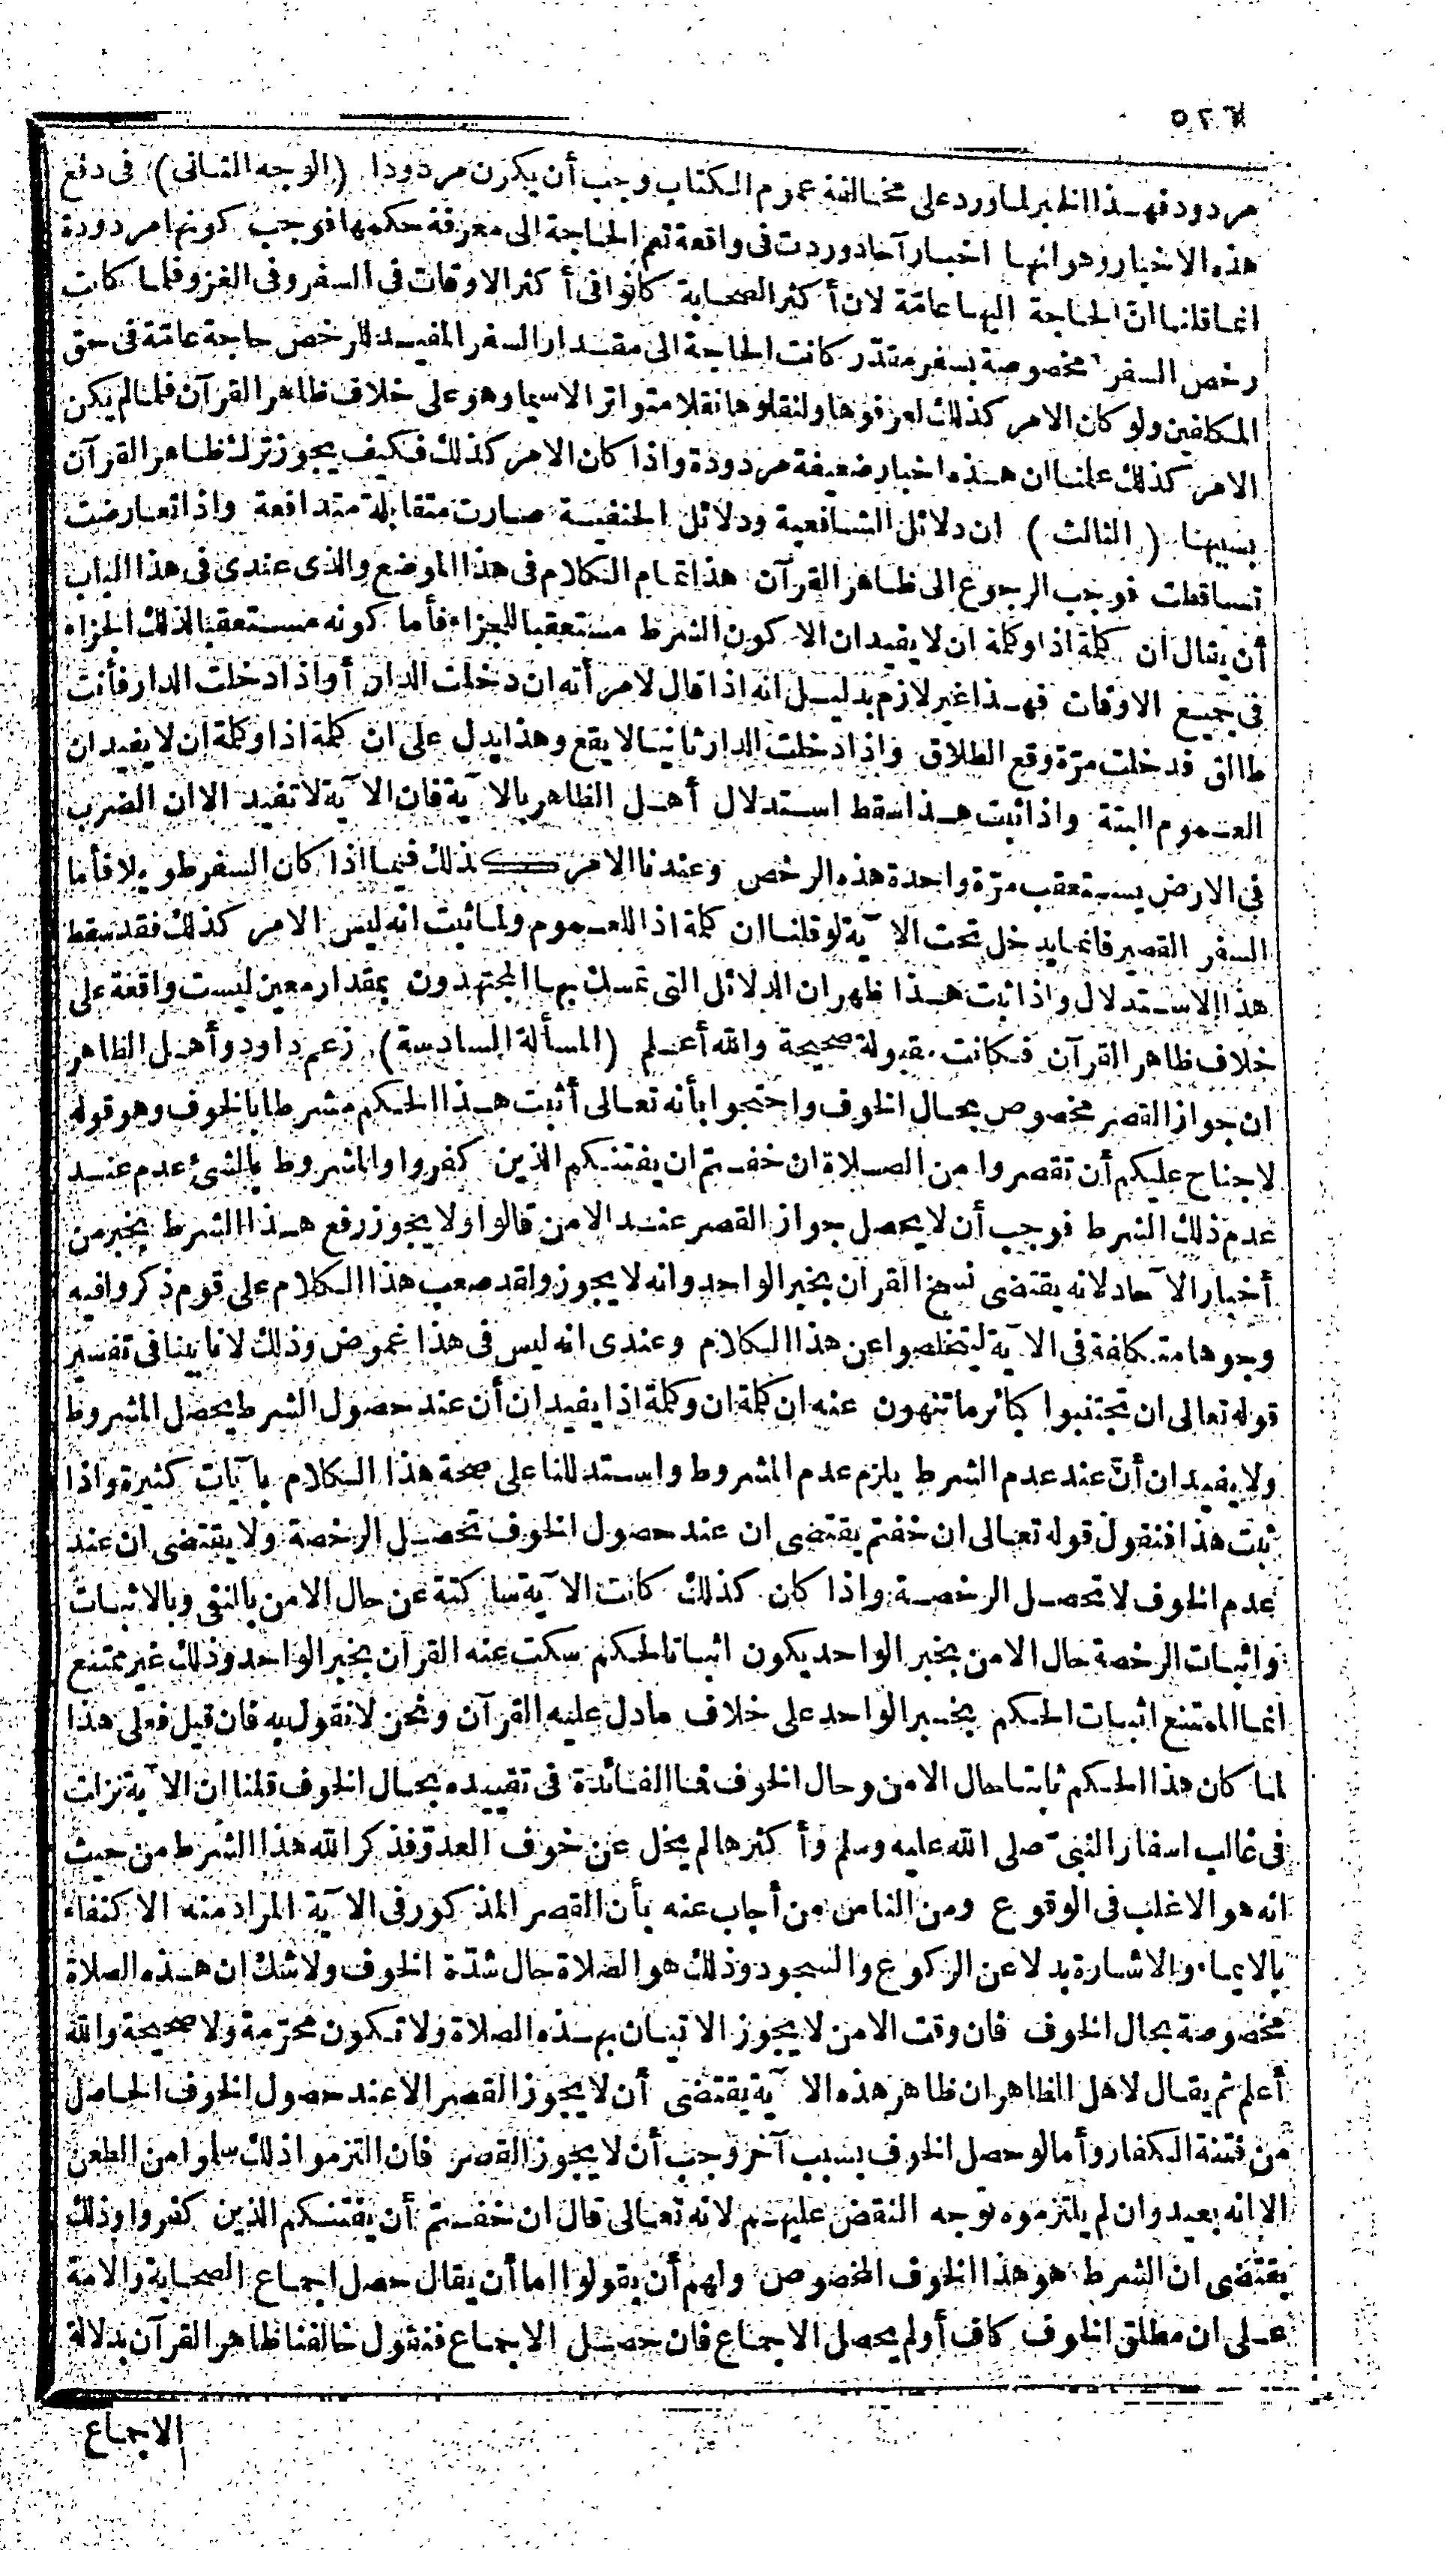 مردود فهذا الخبر لما ورد على مخالفة عموم الكتاب وجب أن يكون مردودا (الوجه الثانى) فى دفع
هذه الاخبار وهو انها اخبار آحاد وردت فى واقعة تعم الحاجة الى معرفة حكمها فوجب كونها مردودة
انما قلنا ان الحاجة اليها عامّة لان أكثر الصحابة كانوا فى أكثر الاوقات فى السفر وفى الغزو فلما كانت
رخص السفر مخصوصة بسفر مقدّر كانت الحاجة الى مقدار السفر المفيد للرخص حاجة عامّة فى حق
المكلفين ولو كان الامر كذلك لعرفوها ولنقلوها نقلا متواترا لاسيما وهو على خلاف ظاهر القرآن فلما لم يكن
الامر كذلك علمنا ان هذه اخبار ضعيفة مردودة واذا كان الامر كذلك فكيف يجوز ترك ظاهر القرآن
بسببها (الثالث) ان دلائل الشافعية ودلائل الحنفية صارت متقابلة متدافعة واذا تعارضت
تساقطت فوجب الرجوع الى ظاهر القرآن هذا تمام الكلام فى هذا الموضع والذى عندى فى هذا الباب
أن يقال ان كلمة اذا وكلمة ان لا يفيدان الا كون الشرط مستعقبا للجزاء فأما كونه مستعقبا لذلك الجزاء
فى جميع الاوقات فهذا غير لازم بدليل انه اذا قال لامرأته ان دخلت الدار أو اذا دخلت الدار فأنت
طالق فدخلت مرّة وقع الطلاق واذا دخلت الدار ثانيا لا يقع وهذا يدل على ان كلمة اذا وكلمة ان لا يفيدان
العموم البتة واذا ثبت هذا سقط استدلال أهل الظاهر بالآية فان الآية لا تفيد الا ان الضرب
فى الارض يستعقب مرّة واحدة هذه الرخص وعندنا الامر كذلك فيما اذا كان السفر طويلا فأما
السفر القصير فانما يدخل تحت الآية لو قلنا ان كلمة اذا للعموم ولما ثبت انه ليس الامر كذلك فقد سقط
هذا الاستدلال واذا ثبت هذا ظهر ان الدلائل التى تمسك بها المجتهدون بمقدار معين ليست واقعة على
خلاف ظاهر القرآن فكانت مقبولة صحيحة والله أعلم (المسألة السادسة) زعم داود وأهل الظاهر
ان جواز القصر مخصوص بحال الخوف واحتجوا بأنه تعالى أثبت هذا الحكم مشرطا بالخوف وهو قوله
لا جناح عليكم أن تقصروا من الصلاة ان خفتم ان يفتنكم الذين كفروا والمشروط بالشئ عدم عند
عدم ذلك الشرط فوجب أن لا يحصل جواز القصر عند الامن قالوا ولا يجوز رفع هذا الشرط بخبر من
أخبار الآحاد لانه يقتضى نسخ القرآن بخبر الواحد وانه لا يجوز ولقد صعب هذا الكلام على قوم ذكروا فيه
وجوها متكلفة فى الآية ليتخلصوا عن هذا الكلام وعندى انه ليس فى هذا غموض وذلك لانا بينا فى تفسير
قوله تعالى ان تجتنبوا كبائر ما تنهون عنه ان كلمة ان وكلمة اذا يفيدان أن عند حصول الشرط يحصل المشروط
ولا يفيدان أنّ عند عدم الشرط يلزم عدم المشروط واستدللنا على صحة هذا الكلام بآيات كثيرة واذا
ثبت هذا فنقول قوله تعالى ان خفتم يقتضى ان عند حصول الخوف تحصل الرخصة ولا يقتضى ان عند
عدم الخوف لا تحصل الرخصة واذا كان كذلك كانت الآية ساكتة عن حال الامن بالنفى وبالاثبات
واثبات الرخصة حال الامن بخبر الواحد يكون اثباتا لحكم سكت عنه القرآن بخبر الواحد وذلك غير ممتنع
انما الممتنع اثبات الحكم بخبر الواحد على خلاف مادل عليه القرآن ونحن لا نقول به فان قيل فعلى هذا
لما كان هذا الحكم ثابتا حال الامن وحال الخوف فما الفائدة فى تقييده بحال الخوف قلنا ان الآية نزلت
فى غالب اسفار النبىّ صلى الله عليه وسلم وأكثرها لم يخل عن خوف العدوّ فذكر الله هذا الشرط من حيث
انه هو الاغلب فى الوقوع ومن الناس من أجاب عنه بأن القصر المذكور فى الآية المراد منه الاكتفاء
بالايماء والاشارة بدلا عن الركوع والسجود وذلك هو الصلاة حال شدّة الخوف ولا شك ان هذه الصلاة
مخصوصة بحال الخوف فان وقت الامن لا يجوز الاتيان بهذه الصلاة ولا تكون محرّمة ولا صحيحة والله
أعلم ثم يقال لاهل الظاهر ان ظاهر هذه الآية يقتضى أن لا يجوز القصر الا عند حصول الخوف الحاصل
من فتنة الكفار وأما لو حصل الخوف بسبب آخر وجب أن لا يجوز القصر فان التزموا ذلك سلموا من الطعن
الا انه بعيد وان لم يلتزموه توجه النقض عليهم لانه تعالى قال ان خفتم أن يفتنكم الذين كفروا وذلك
يقتضى ان الشرط هو هذا الخوف المخصوص ولهم أن يقولوا اما أن يقال حصل اجماع الصحابة والامة
على ان مطلق الخوف كاف أو لم يحصل الاجماع فان حصل الاجماع فنقول خالفنا ظاهر القرآن بدلالة
الاجماع